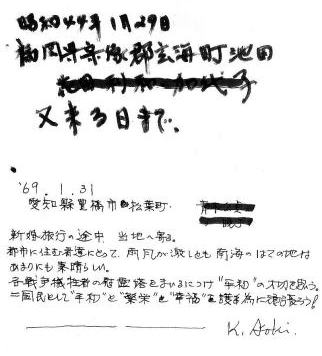 昭和44年1月29日
福岡県宗像郡玄海町池田
又来る日まで.
'69.1.31
愛知縣豊橋市松葉町.
新婚旅行の途中 当地へ寄る。
都市に住む者達にとって、雨風が激しくとも南海のはての地は
あまりにも素晴らしい。
各戦争犠牲者の慰霊塔をまいるにつけ "平和"の大切を思う。
一国民として"平和"と"繁栄"と"幸福"を護る為に頑張ろう!
K. Aoki.